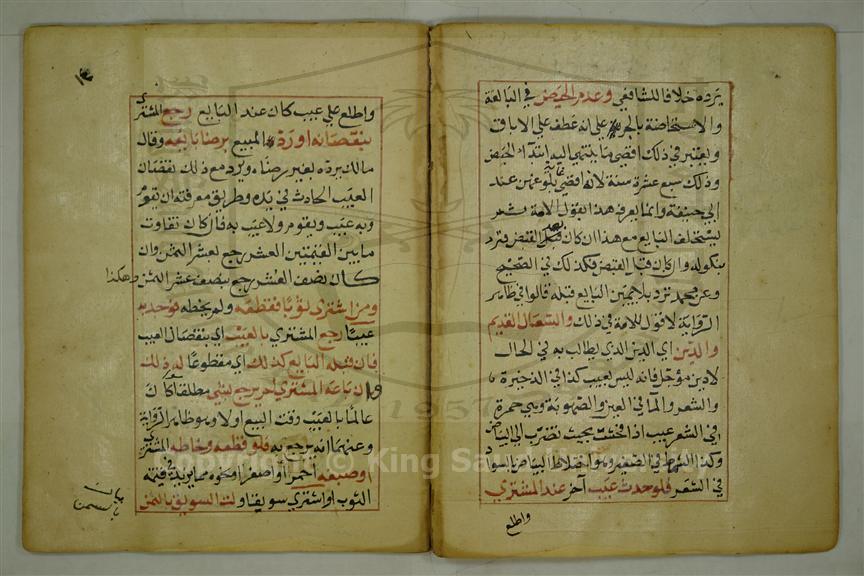 يرده خلافا للشافعي وعدم الحيض في البالغة
والاستحاضة بالجر على انه عطف على الاباق
ويعتبر في ذلك اقصى ما ينتهي اليه ابتداء الحيض
وذلك سبع عشرة سنة لانه اقصى غاية بلوغهن عند
ابي حنيفة وانما يعرف هذا بقول الامة بشعر
يستحلف البايع مع هذا ان كان بعد القبض فترد
بنكوله وان كان قبل القبض فكذلك في الصحيح
وعن محمد ترد بلا يمين البايع قبله قالوا في ظاهر
الرواية لا قول للامة في ذلك والسعال القديم
والدين اي الدين الذي يطالب به في الحال
لا دين مؤجل فانه ليس بعيب كذا في الذخيرة
والشعر والما في العين والصهوبة وهي حمرة
في الشعر عيب اذا فحشت بحيث تضرب الى البياض
وكذا الشمط في الصغير وهو اختلاط البياض بالسواد
في الشعر فلو حدث عيب آخر عند المشتري
واطلع
واطلع على عيب كان عند البايع رجع المشتري
بنقصانه او رد المبيع برضا بايعه وقال
مالك يرده بغير رضاه ويرد مع ذلك نقصان
العيب الحادث في يده وطريق معرفته ان يقوم
وبه عيب ويقوم ولا عيب به فان كان تفاوت
ما بين القيمتين العشر رجع لعشر الثمن وان
كان نصف العشر رجع بنصف عشر الثمن وهكذا
ومن اشترى ثوبا فقطعه ولم يخطه فوجد به
عيبا رجع المشتري بالعيب اي بنقصان العيب
فان قبله البايع كذلك اي مقطوعا له ذلك
وان باعه المشتري لم يرجع بشي مطلقا كان
عالما بالعيب وقت البيع او لا وهو ظاهر الرواية
وعنهما انه يرجع به فلو قطعه وخاطه المشتري
او صبغه احمر او اصفر او نحوه مما يزيد في قيمته
الثوب او اشترى سويقا ولت السويق بالسمن
King Saud
1957